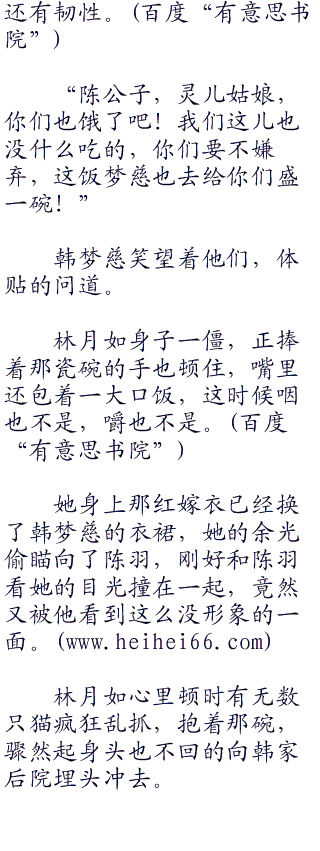 还有韧性。(百度“有意思书
院”)
“陈公子，灵儿姑娘，
你们也饿了吧！我们这儿也
没什么吃的，你们要不嫌
弃，这饭梦慈也去给你们盛
一碗！”
韩梦慈笑望着他们，体
贴的问道。
林月如身子一僵，正捧
着那瓷碗的手也顿住，嘴里
还包着一大口饭，这时候咽
也不是，嚼也不是。(百度
“有意思书院”)
她身上那红嫁衣已经换
了韩梦慈的衣裙，她的余光
偷瞄向了陈羽，刚好和陈羽
看她的目光撞在一起，竟然
又被他看到这么没形象的一
面。(www.heihei66.com)
林月如心里顿时有无数
只猫疯狂乱抓，抱着那碗，
骤然起身头也不回的向韩家
后院埋头冲去。